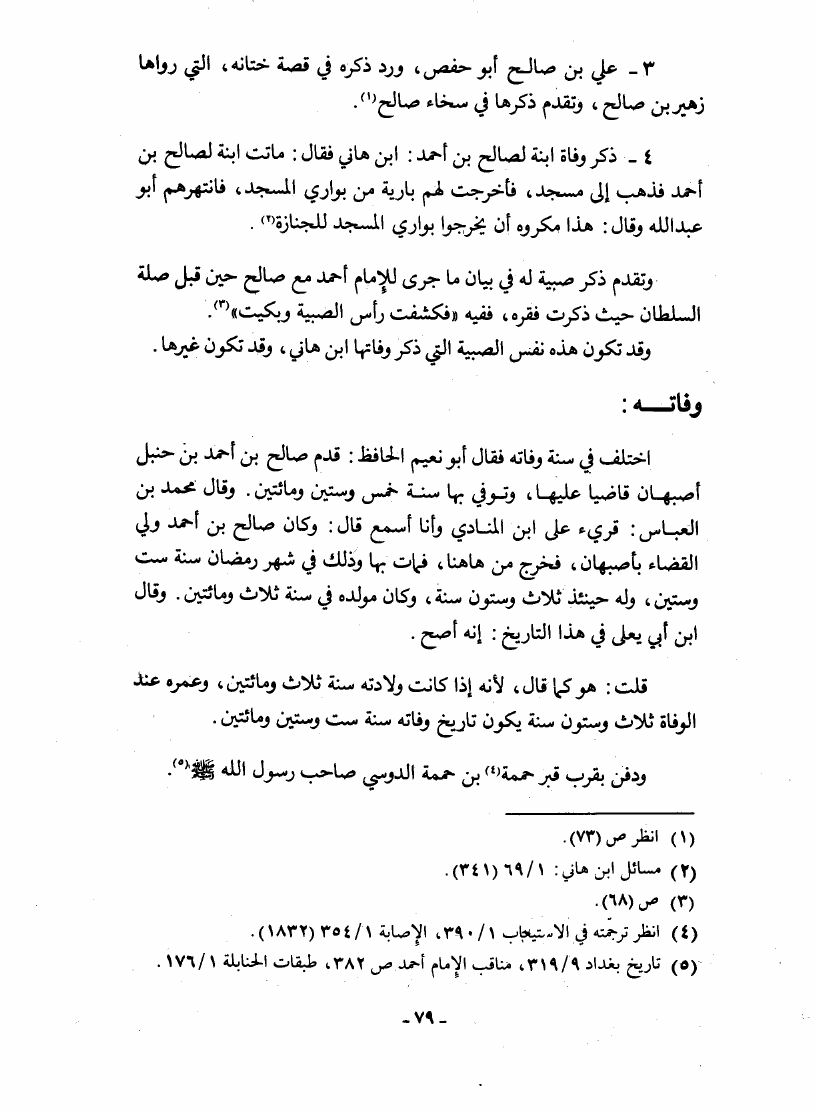 ٣ - علي بن صالح أبو حفص، ورد ذكره في قصة ختانه، التي رواها
زهير بن صالح، وتقدم ذكرها في سخاء صالح(١).
٤ - ذكر وفاة ابنة لصالح بن أحمد: ابن هاني فقال: ماتت ابنة لصالح بن
أحمد فذهب إلى مسجد، فأخرجت لهم بارية من بواري المسجد، فانتهرهم أبو
عبدالله وقال: هذا مكروه أن يخرجوا بواري المسجد للجنازة(٢).
وتقدم ذكر صبية له في بيان ما جرى للإمام أحمد مع صالح حين قبل صلة
السلطان حيث ذكرت فقره، ففيه «فكشفت رأس الصبية وبكيت»(٣).
وقد تكون هذه نفس الصبية التي ذكر وفاتها ابن هاني، وقد تكون غيرها.
وفاتـــه:
اختلف في سنة وفاته فقال أبو نعيم الحافظ: قدم صالح بن أحمد بن حنبل
أصبهان قاضيا عليها، وتوفي بها سنة خمس وستين ومائتين. وقال محمد بن
العباس: قريء على ابن المنادي وأنا أسمع قال: وكان صالح بن أحمد ولي
القضاء بأصبهان، فخرج من هاهنا، فمات بها وذلك في شهر رمضان سنة ست
وستين، وله حينئذ ثلاث وستون سنة، وكان مولده في سنة ثلاث ومائتين. وقال
ابن أبي يعلى في هذا التاريخ: إنه أصح.
قلت: هو كما قال، لأنه إذا كانت ولادته سنة ثلاث ومائتين، وعمره عند
الوفاة ثلاث وستون سنة يكون تاريخ وفاته سنة ست وستين ومائتين.
ودفن بقرب قبر حممة(٤) بن حممة الدوسي صاحب رسول الله ﷺ(٥).
(١) انظر ص (٧٣).
(٢) مسائل ابن هاني: ٦٩/١ (٣٤١).
(٣) ص (٦٨).
(٤) انظر ترجمته في الاستيعاب ٣٩٠/١، الإصابة ٣٥٤/١ (١٨٣٢).
(٥) تاريخ بغداد ٣١٩/٩، مناقب الإمام أحمد ص ٣٨٢، طبقات الحنابلة ١٧٦/١.
- ٧٩ -